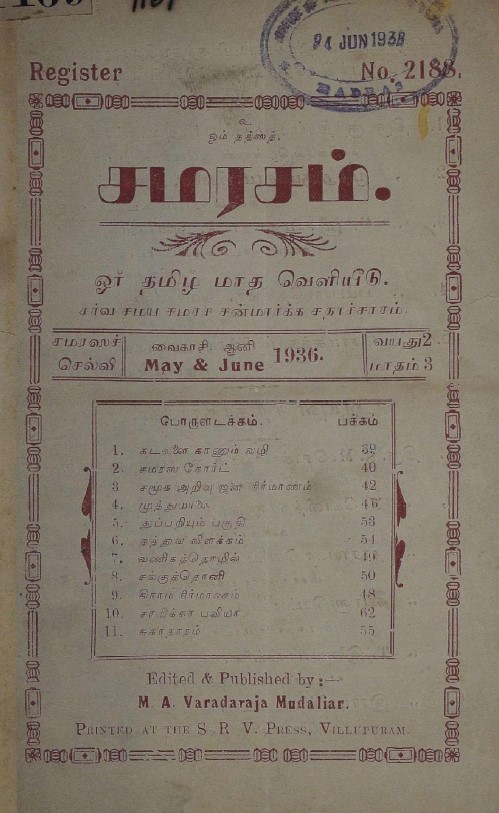 Register No. 2188.
24 JUN 1938
MADRAS
உ
ஓம் தத்ஸத்.
சமரசம்.
ஓர் தமிழ் மாத வெளியீடு.
சர்வ சமய சமரச சன்மார்க்க சதாச்சாரம்.
சமரஸச் செல்வி
வைகாசி ஆனி
May & June 1936.
வயது 2
மாதம் 3
பொருளடக்கம். பக்கம்
1. கடவுளை காணும் வழி 39
2. சமரஸ கோர்ட் 40
3 சமூக அறிவு ஜன நிர்மாணம் 42
4. முத்துமாலை 46
5. துப்பறியும் பகுதி 53
6. தத்துவ விளக்கம் 54
7. வணிகத்தொழில் 49
8. சங்குத்தொனி 50
9. கிராம நிர்மாணம் 48
10. 62
11. சுகாதாரம் 55
Edited & Published by:—
M. A. Varadaraja Mudaliar.
PRINTED AT THE S. R. V. PRESS, VILLUPURAM.